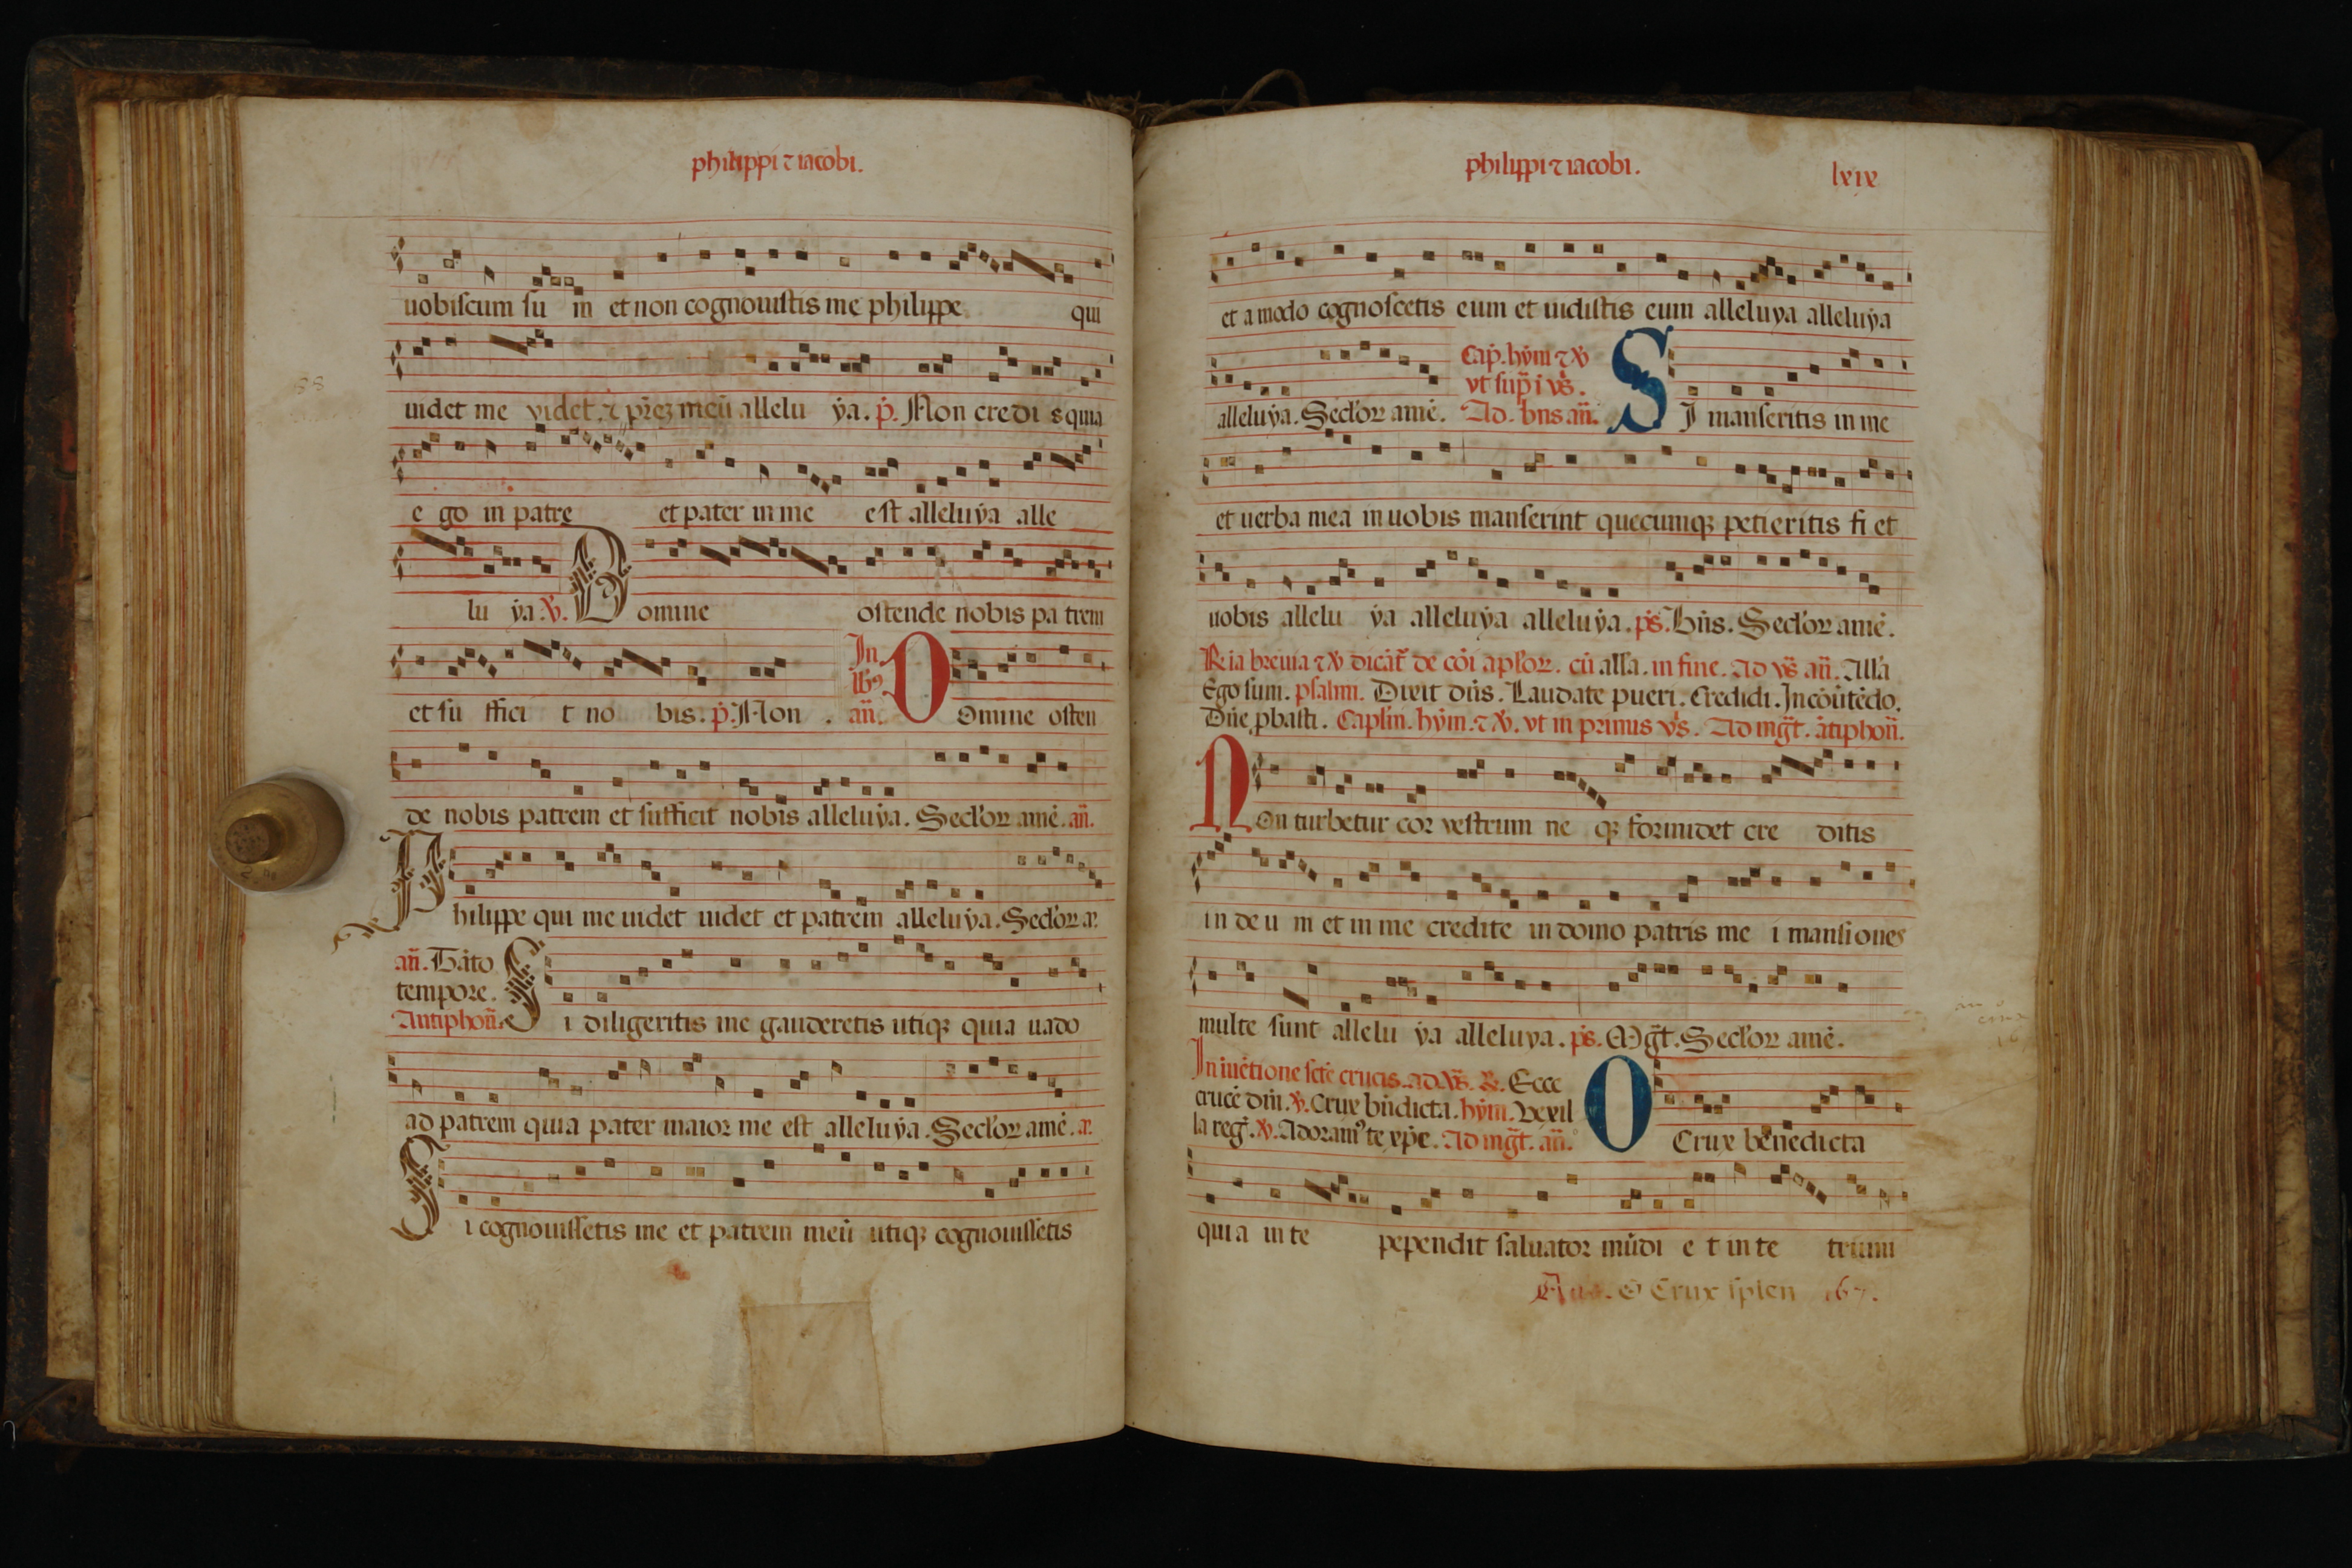 philippi ⁊ iacobi.
uobiscum su m et non cognouistis me philippe qui
uidet me videt ⁊ pr̄eꝫ meū allelu ẏa. p̄. Non credi s quia
e go in patre et pater in me est alleluẏa alle
lu ẏa. ℣. Domine ostende nobis pa trem
et su ffici t no bis. p̄. Non.
In
lb᷒
añ. Domine osten
de nobis patrem et sufficit nobis alleluẏa. Secl'oꝝ amē. añ.
Philippe qui me uidet uidet et patrem alleluẏa. Secl'oꝝ a.
añ. Tāto
tempore.
Antiphoñ. Si diligeritis me gauderetis utiqꝫ quia uado
ad patrem quia pater maior me est alleluẏa. Secl'oꝝ amē. a.
Si cognouissetis me et patrem meū utiqꝫ cognouissetis
philippi ⁊ iacobi. lxix
et a modo cognoscetis eum et uidistis eum alleluya alleluẏa
Cap̄. hẏm̄ ⁊ ℣
vt sup̄ i vs̄.
alleluẏa. Secl'oꝝ amē. Ad. bn̄s añ. SI manseritis in me
et uerba mea in uobis manserint quecumqꝫ petieritis fi et
uobis allelu ẏa alleluẏa alleluẏa. ps̄. Bn̄s. Secl'oꝝ amē.
℞ia breuia ⁊ ℣ dicāt᷑ de cōi apl'oꝝ. cū all'a. in fine. Ad vs̄ añ. All'a
Ego sum. psalmi. Dixit dn̄s. Laudate pueri. Credidi. In cōūtēdo.
Dn̄e ꝓbasti. Capl'm. hẏm̄. ⁊ ℣. vt in primis vs̄. Ad mḡt. ātiphoñ.
NOn turbetur cor vestrum ne qꝫ formidet cre ditis
in de u m et in me credite in domo patris me i mansiones
multe sunt allelu ẏa alleluya. ps̄. Mḡt. Secl'oꝝ amē.
In īuētione sct̄e crucis. ad. vs̄. ℞. Ecce
crucē dn̄i. ℣. Crux bn̄dicta. hẏm̄. Vexil
la reg̅. ℣. Adoram᷒ te xp̄e. Ad mḡt. añ. O Crux benedicta
quia in te pependit saluator mūdi e t in te trium
O Crux splen